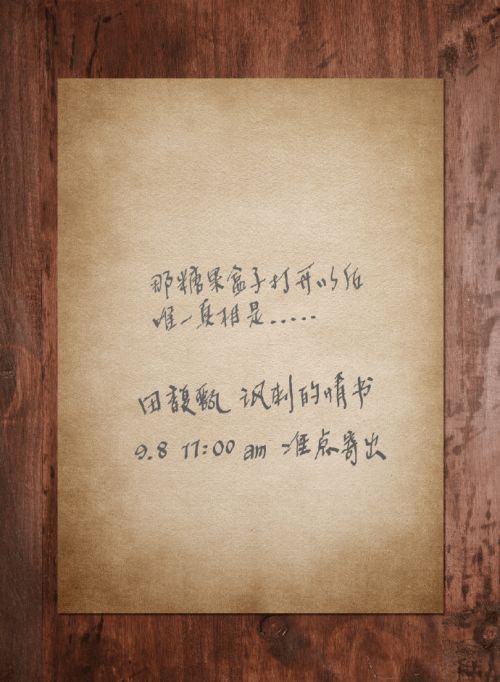 那糖果盒子打开以后
唯一真相是.....
田馥甄 讽刺的情书
9.8 11:00 am 准点寄出